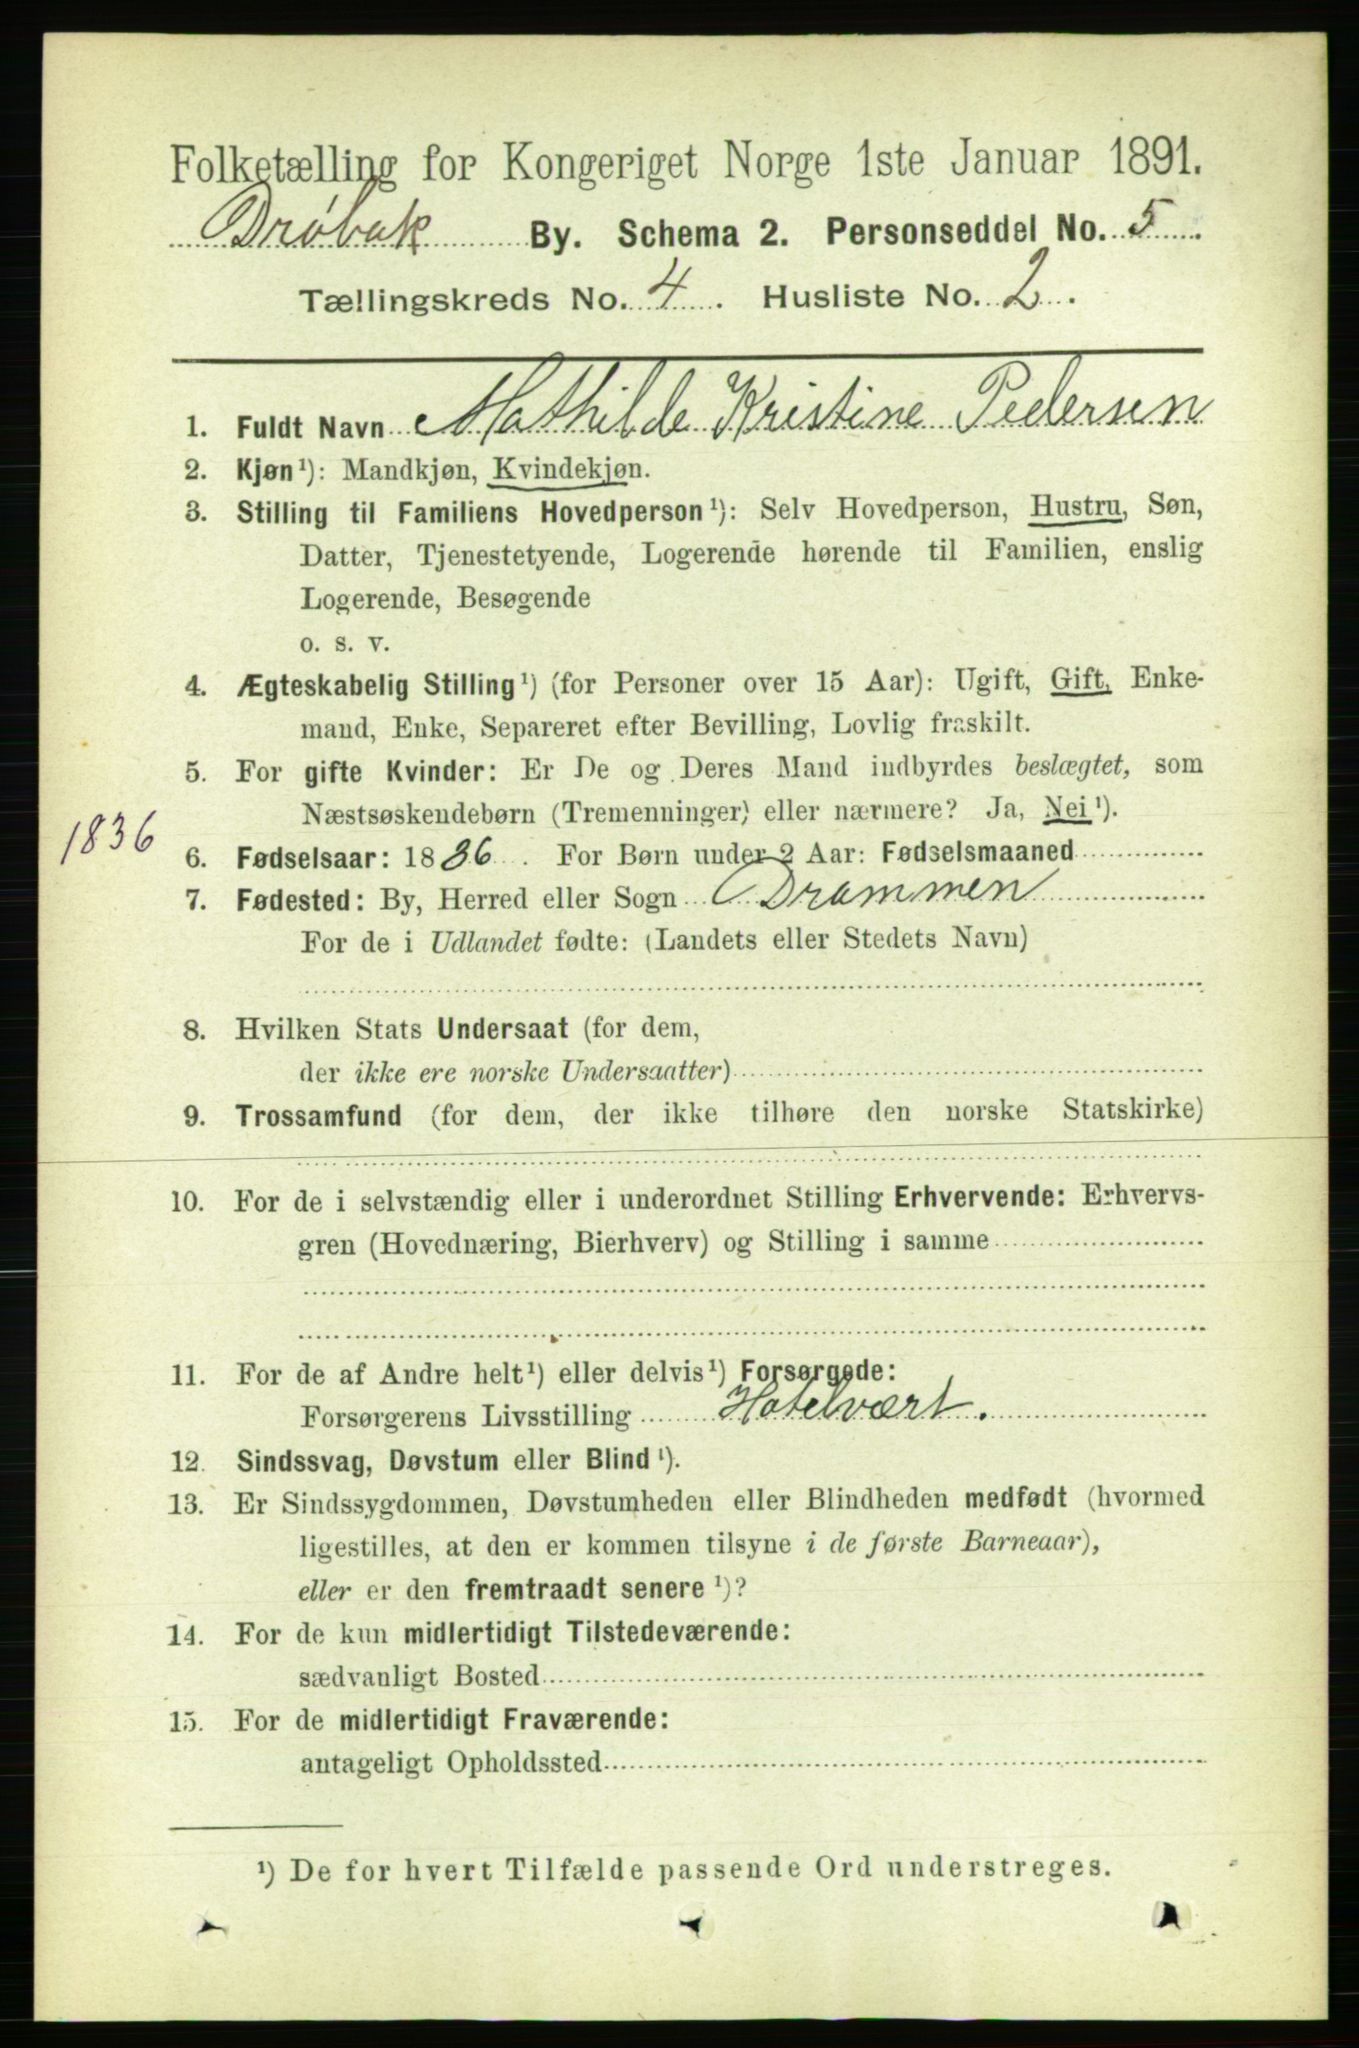 Folketælling for Kongeriget Norge 1ste Januar 1891.
Drøbak By. Schema 2. Personseddel No. 5.
Tællingskreds No. 4. Husliste No. 2.
1. Fuldt Navn Mathilde Kristine Pedersen
2. Kjøn¹): Mandkjøn, Kvindekjøn.
3. Stilling til Familiens Hovedperson¹): Selv Hovedperson, Hustru, Søn,
Datter, Tjenestetyende, Logerende hørende til Familien, enslig
Logerende, Besøgende
o. s. v.
4. Ægteskabelig Stilling¹) (for Personer over 15 Aar): Ugift, Gift, Enke-
mand, Enke, Separeret efter Bevilling, Lovlig fraskilt.
5. For gifte Kvinder: Er De og Deres Mand indbyrdes beslægtet, som
Næstsøskendebørn (Tremenninger) eller nærmere? Ja, Nei¹).
1836
6. Fødselsaar: 1836. For Børn under 2 Aar: Fødselsmaaned
7. Fødested: By, Herred eller Sogn Drammen
For de i Udlandet fødte: (Landets eller Stedets Navn)
8. Hvilken Stats Undersaat (for dem,
der ikke ere norske Undersaatter)
9. Trossamfund (for dem, der ikke tilhøre den norske Statskirke)
10. For de i selvstændig eller i underordnet Stilling Erhvervende: Erhvervs-
gren (Hovednæring, Bierhverv) og Stilling i samme
11. For de af Andre helt¹) eller delvis¹) Forsørgede:
Forsørgerens Livsstilling Hotelvært.
12. Sindssvag, Døvstum eller Blind¹).
13. Er Sindssygdommen, Døvstumheden eller Blindheden medfødt (hvormed
ligestilles, at den er kommen tilsyne i de første Barneaar),
eller er den fremtraadt senere¹)?
14. For de kun midlertidigt Tilstedeværende:
sædvanligt Bosted
15. For de midlertidigt Fraværende:
antageligt Opholdssted
¹) De for hvert Tilfælde passende Ord understreges.